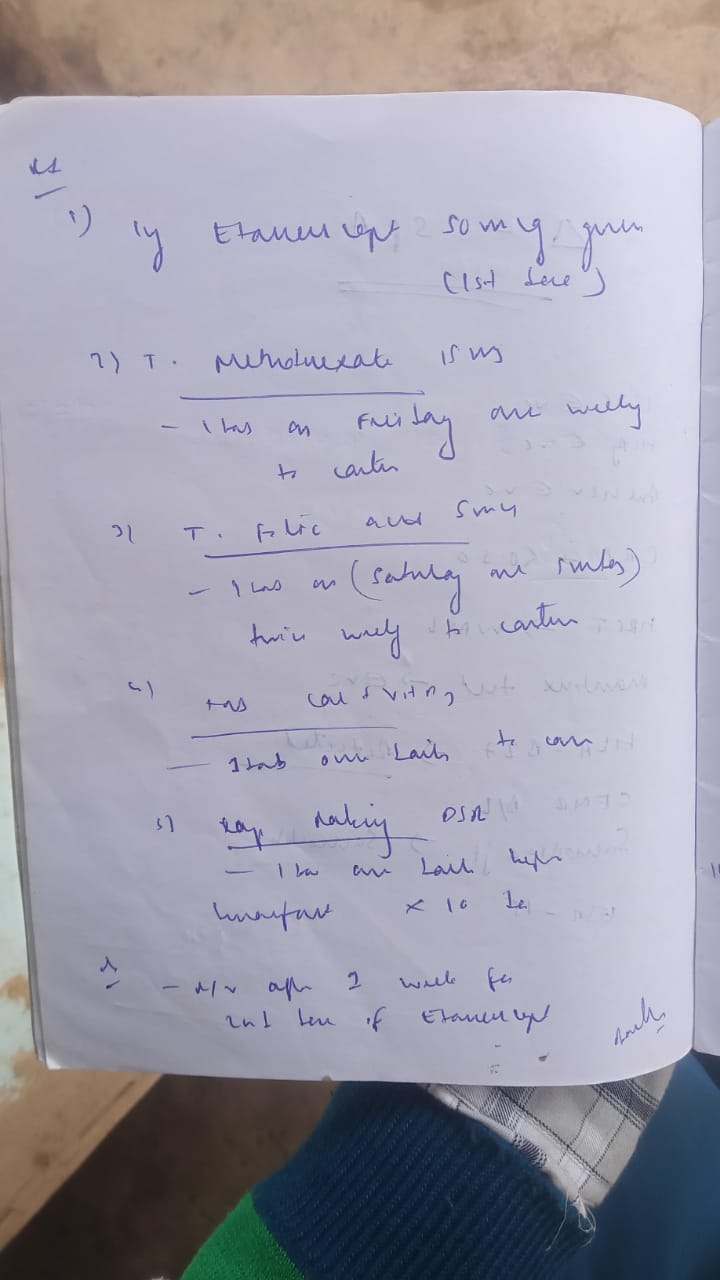 1) Inj Etanercept 50 mg given
(1st dose)
2) T. Methotrexate 15 mg
- 1 tab on Friday once weekly
to contin
3) T. Folic acid 5 mg
- 1 tab on (Saturday and Sunday)
twice weekly to contin
4) Tab
- 1 tab once daily to con
5) Cap DSR
- 1 tab once daily before
breakfast x 10 da
- r/v after week for
2nd dose of Etanercept